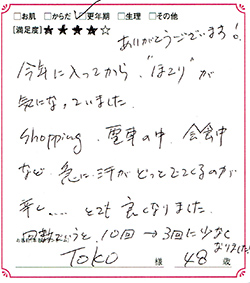 □お肌 □からだ ☑更年期 □生理 □その他
[満足度]★★★★☆
ありがとうございます!
今年に入ってから、"ほてり"が
気になっていました。
shopping、電車の中、会食中
など、急に汗がどっとでてくるのが
辛く.... とても良くなりました。
回数でいうと、10回→3回に少なく
なりました!
TOKO 様 48歳